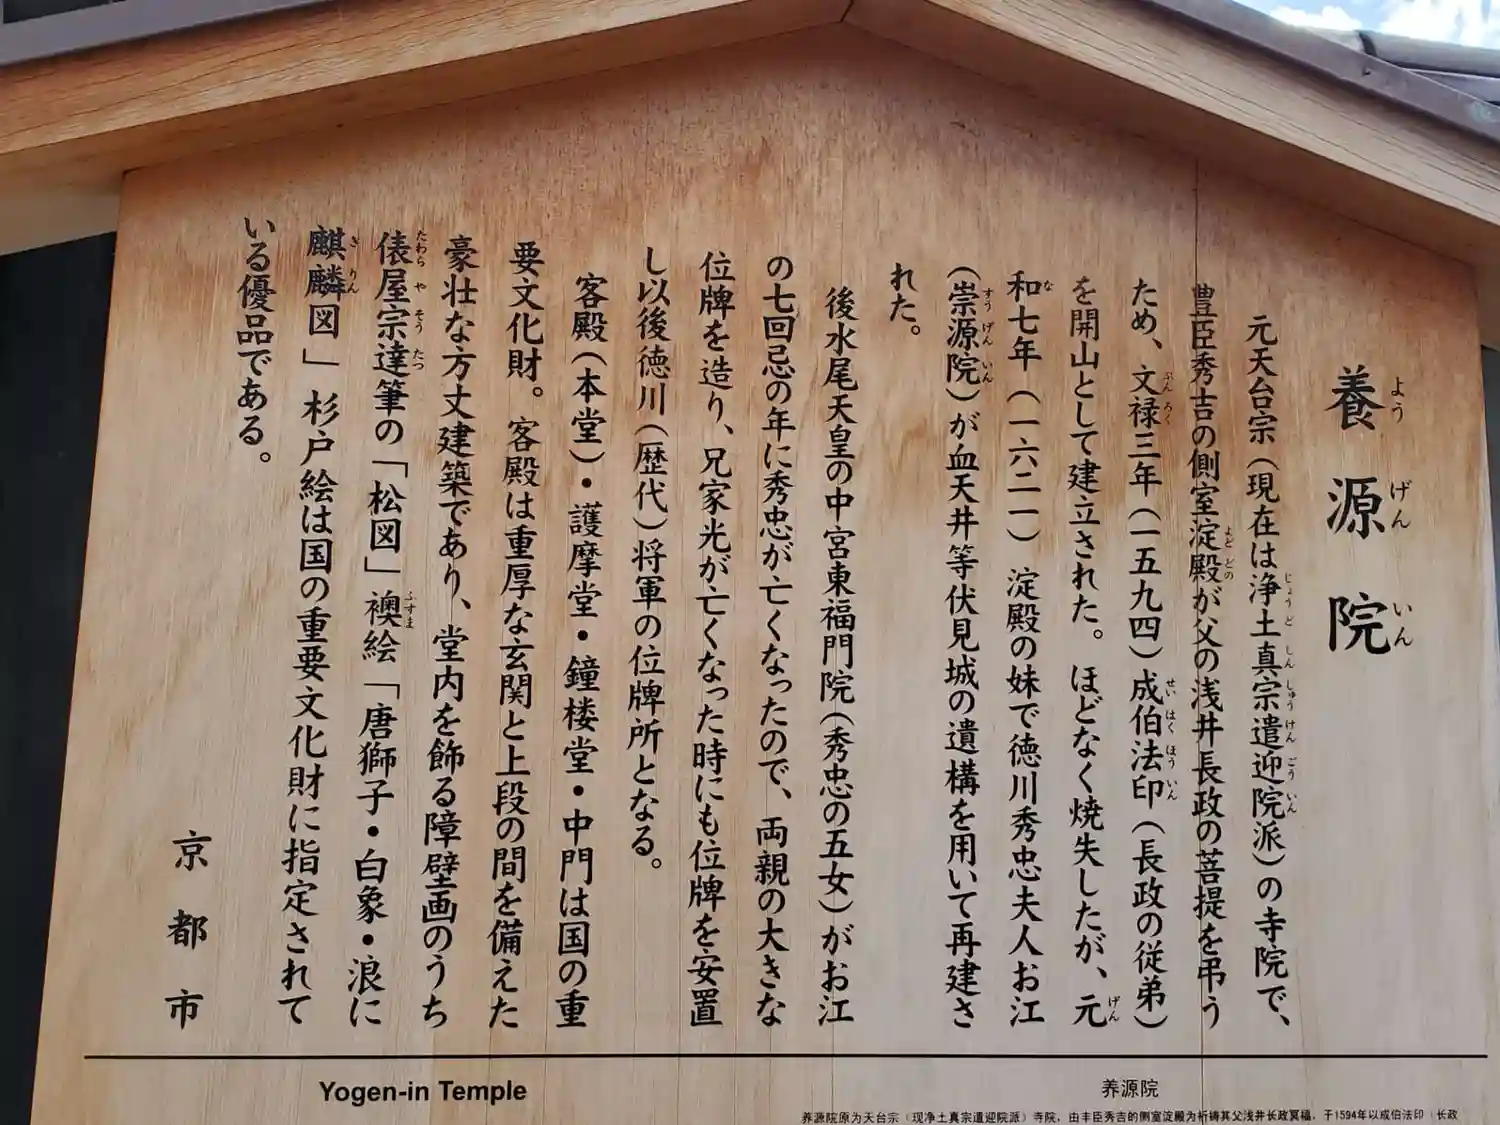 養源院
元天台宗（現在は浄土真宗遣迎院派）の寺院で、
豊臣秀吉の側室淀殿が父の浅井長政の菩提を弔う
ため、文禄三年（一五九四）成伯法印（長政の従弟）
を開山として建立された。ほどなく焼失したが、元
和七年（一六二一）淀殿の妹で徳川秀忠夫人お江
（崇源院）が血天井等伏見城の遺構を用いて再建さ
れた。
後水尾天皇の中宮東福門院（秀忠の五女）がお江
の七回忌の年に秀忠が亡くなったので、両親の大きな
位牌を造り、兄家光が亡くなった時にも位牌を安置
し以後徳川（歴代）将軍の位牌所となる。
客殿（本堂）・護摩堂・鐘楼堂・中門は国の重
要文化財。客殿は重厚な玄関と上段の間を備えた
豪壮な方丈建築であり、堂内を飾る障壁画のうち
俵屋宗達筆の「松図」襖絵「唐獅子・白象・浪に
麒麟図」杉戸絵は国の重要文化財に指定されて
いる優品である。
京都市
Yogen-in Temple
养源院
养源院原为天台宗（现净土真宗遣迎院派）寺院，由丰臣秀吉的侧室淀殿为祈祷其父浅井长政冥福，于1594年以成伯法印（长政